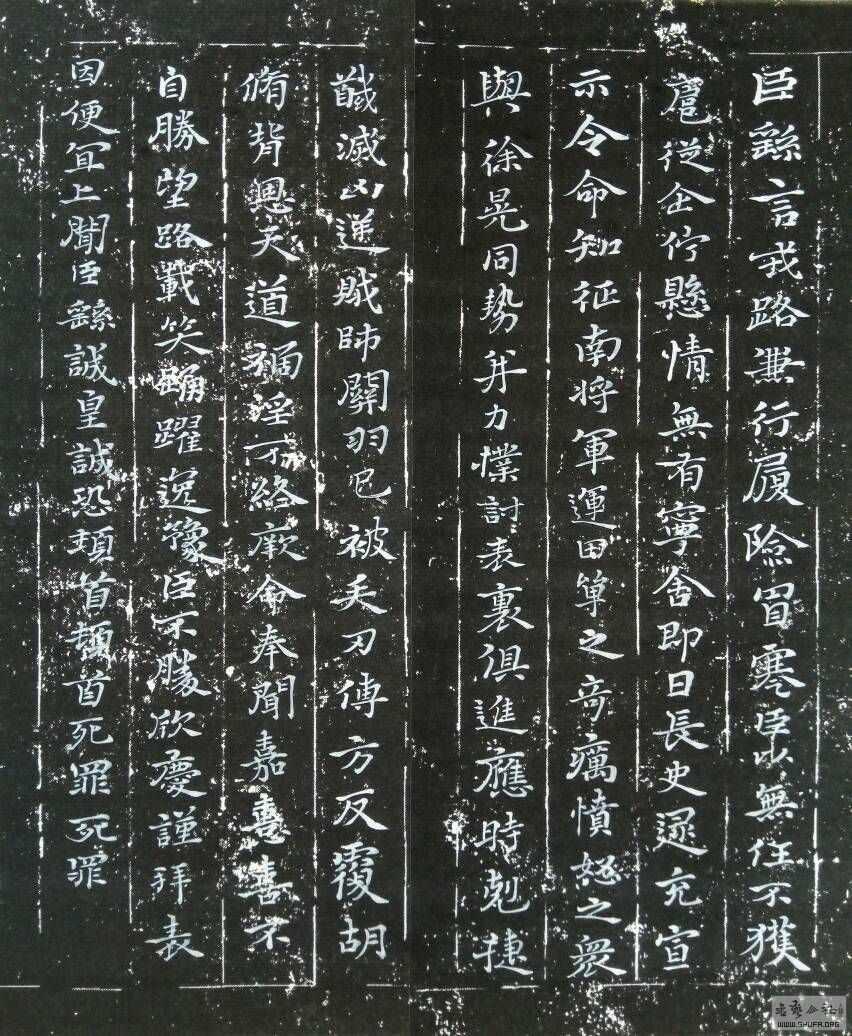 臣繇言戎路兼行履險冒寒臣以無任不獲
扈從企佇懸情無有寧舍即日長史逯充宣
示令命知征南將軍運田單之奇癘憤怒之衆
與徐晃同勢并力撲討表裏俱進應時剋捷
馘滅凶逆賊帥關羽已被矢刃傅方反覆胡
脩背恩天道禍淫不終厥命奉聞嘉憙喜不
自勝望路載笑踊躍逸豫臣不勝欣慶謹拜表
因便宜上聞臣繇誠皇誠恐頓首頓首死罪死罪
WWW.SHUFA.ORG